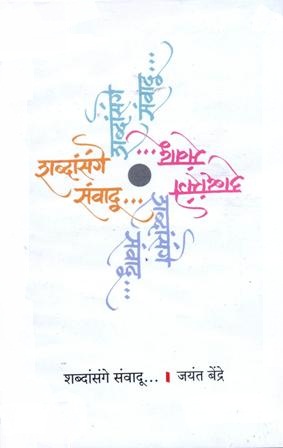 शब्दांसंगे
संवादू...
शब्दांसंगे
संवादू...
शब्दांसंगे
संवादू...
शब्दांसंगे
संवादू...
शब्दांसंगे संवादू... । जयंत बेंद्रे